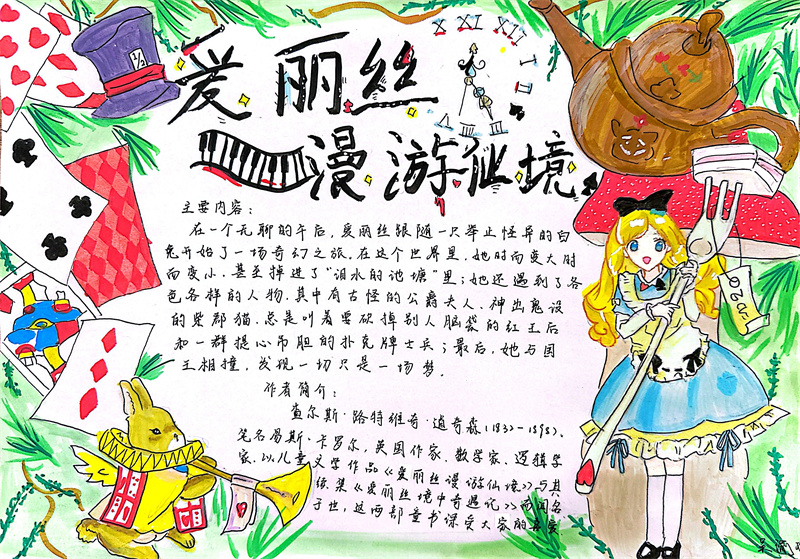 爱丽丝
漫游仙境
XI XII I II
III
1/2
主要内容：
在一个无聊的午后，爱丽丝跟随一只举止怪异的白
兔开始了一场奇幻之旅，在这个世界里，她时而变大时
而变小，甚至掉进了"泪水的池塘"里；她还遇到了各
色各样的人物，其中有古怪的公爵夫人、神出鬼没
的柴郡猫、总是叫着要砍掉别人脑袋的红王后
和一群提心吊胆的扑克牌士兵；最后，她与国
王相撞，发现一切只是一场梦。
作者简介：
查尔斯·路特维奇·道奇森（1832-1898），
笔名易斯·卡罗尔，英国作家、数学家、逻辑学
家，以儿童文学作品《爱丽丝漫游仙境》与其
续集《爱丽丝镜中奇遇记》而闻名
于世，这两部童书深受大家的喜爱